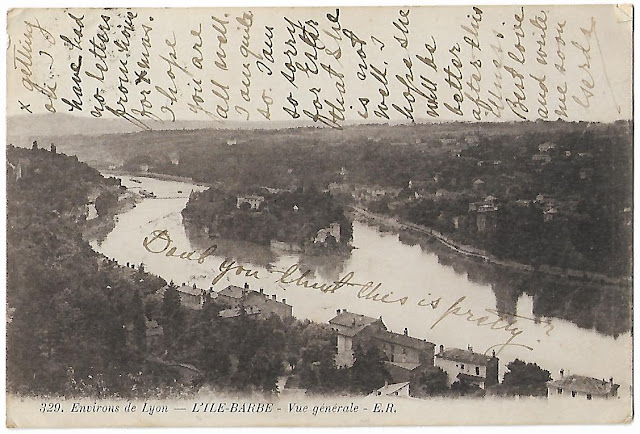 x getting
on. I
have had
no letters
from
for Xmas.
I hope
you are
all well.
I am quite
so. I am
so sorry
for
that she
is not
well. I
hope she
will be
better
after this
Best love
and write
me soon
Don't you think this is pretty?
329. Environs de Lyon — L'ILE-BARBE - Vue générale - E.R.